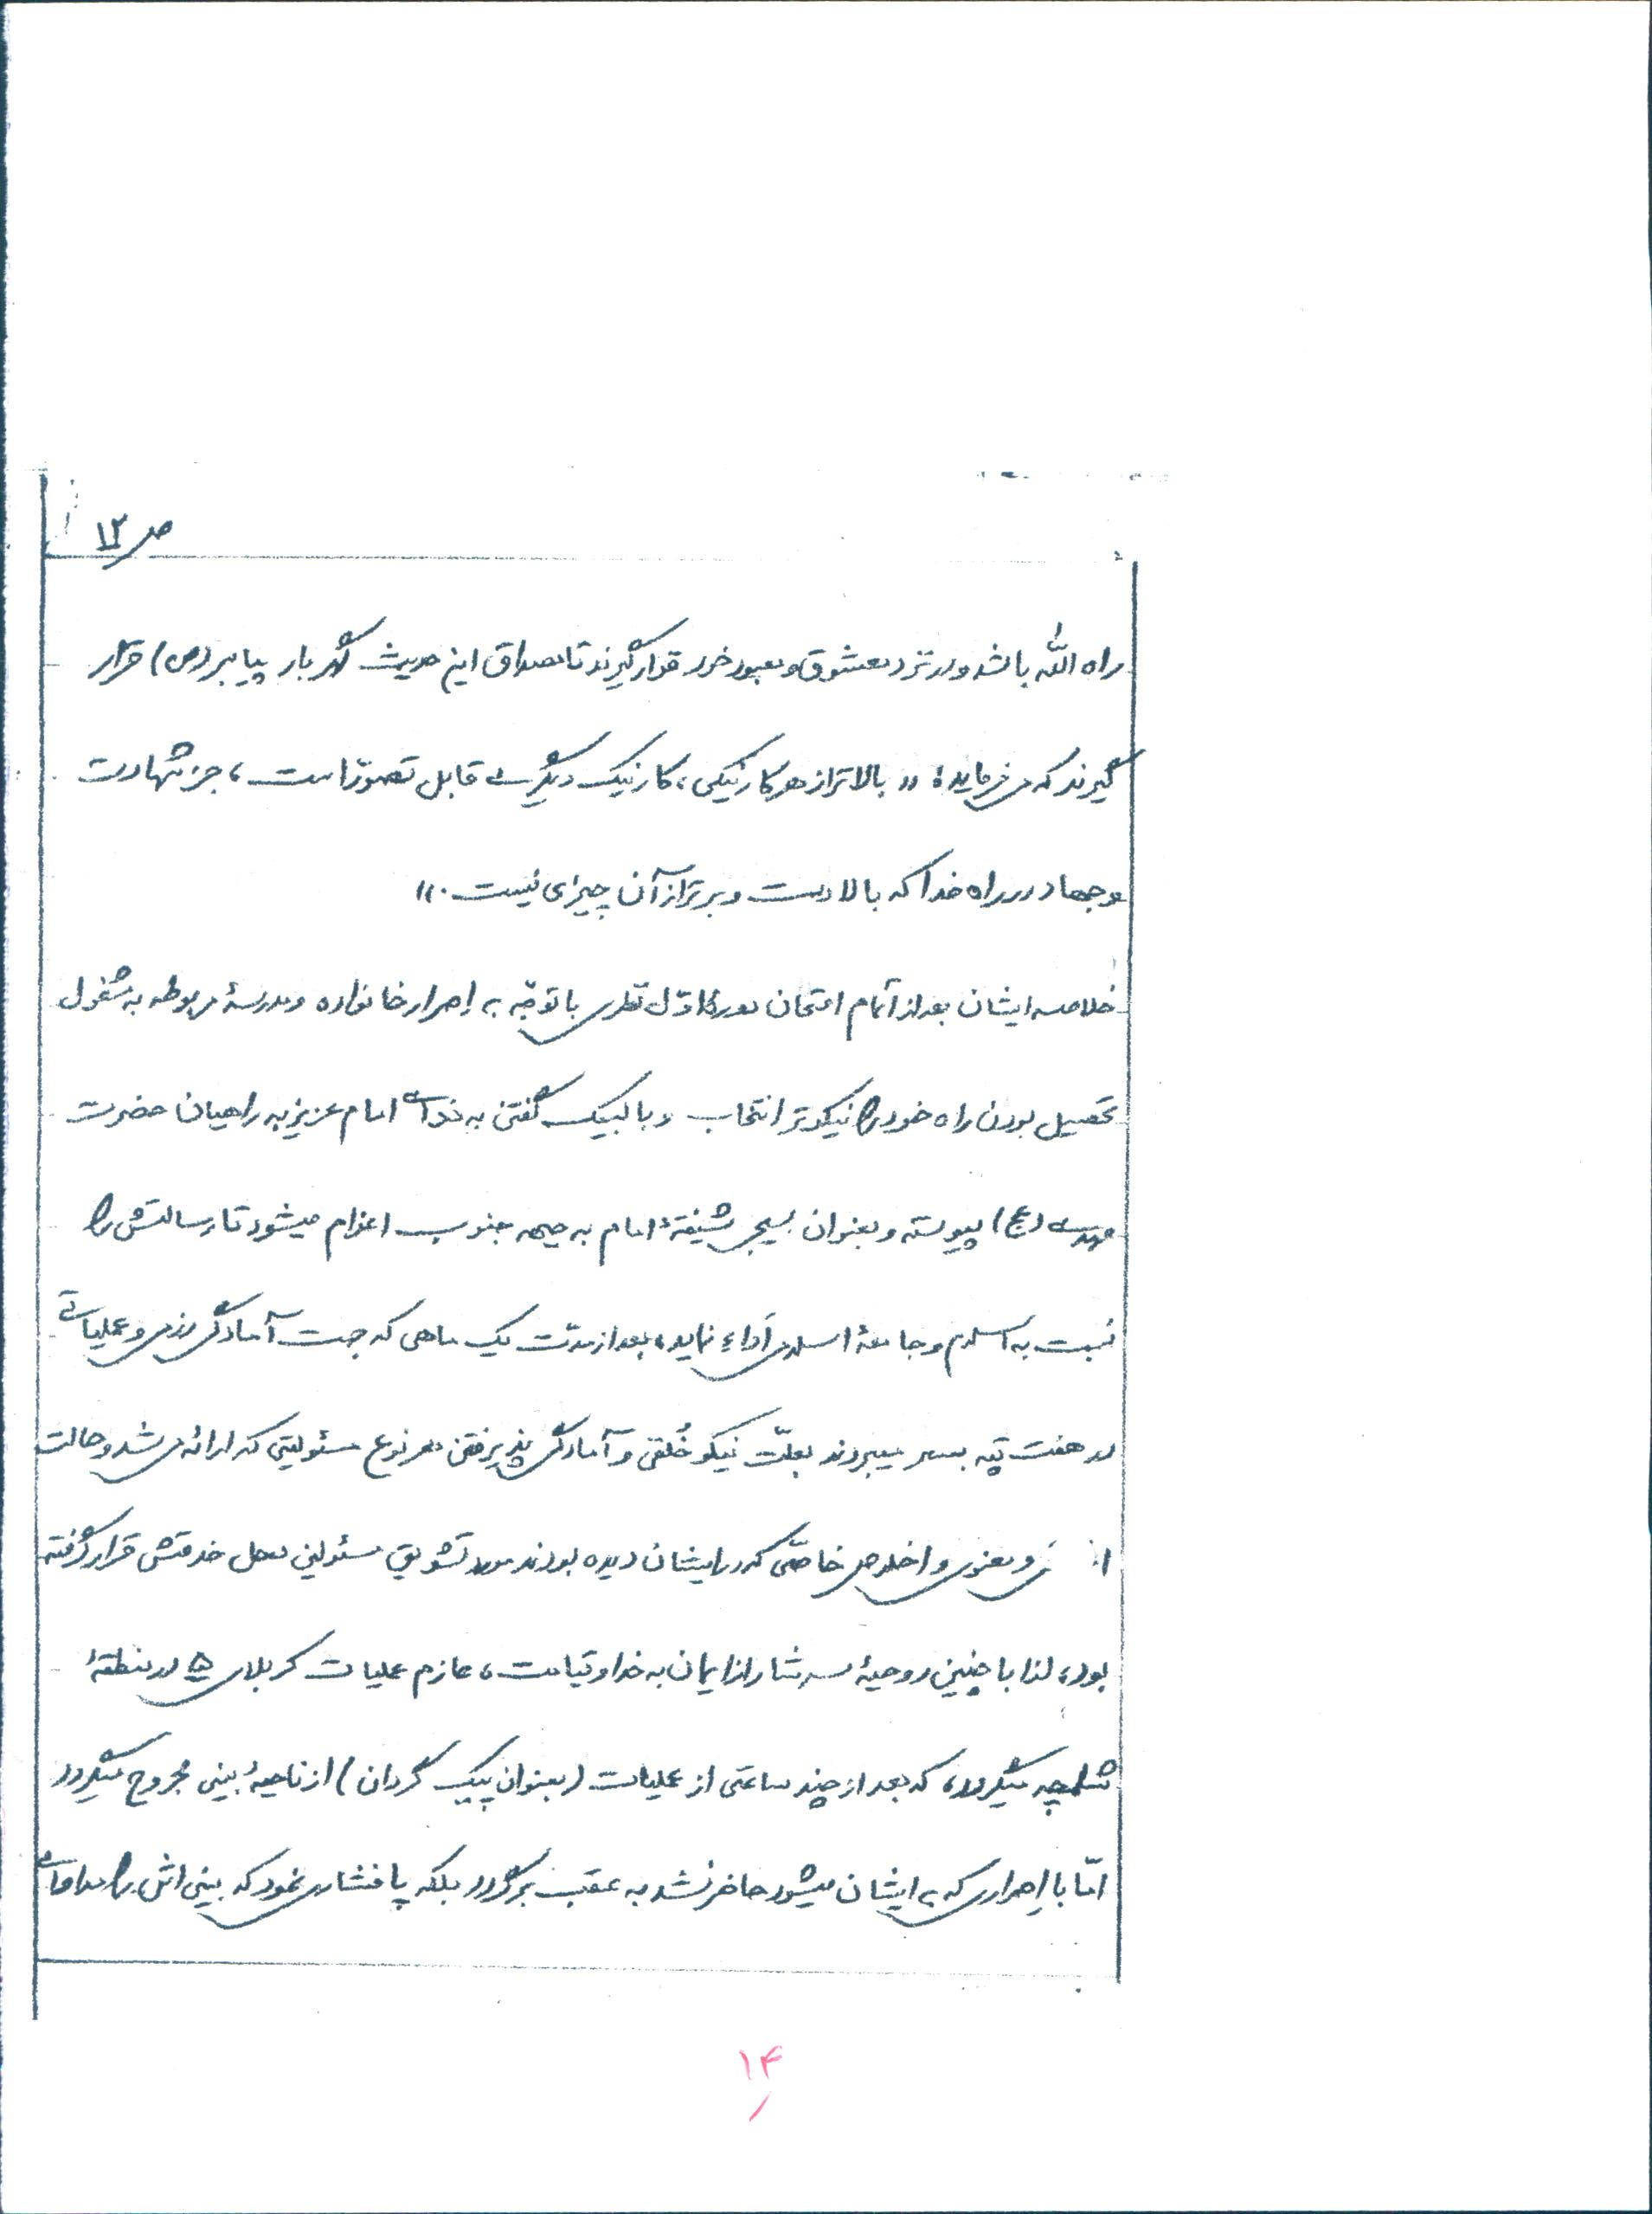 ص ۱۲
راه الله باشد و در نزد معشوق و معبود خود قرار گیرند تا مصداق این حدیث گهربار پیامبر (ص) قرار
گیرند که میفرماید: « بالاتر از هر کار نیکی، کار نیک دیگری قابل تصوّر است، جز شهادت
و جهاد در راه خدا که بالادست و برتر از آن چیزی نیست. »
خلاصه ایشان بعد از اتمام امتحان دورهٔ اوّل نظری با توجّه به اصرار خانواده و مدرسهٔ مربوطه به مشغول
تحصیل بودن راه خود را نیکوتر انتخاب و با لبیک گفتن به ندای امام عزیز به راهیان حضرت
مهدی (عج) پیوسته و بعنوان بسیجی شیفتهٔ امام به جبهه جنوب اعزام میشود تا رسالتش را
نسبت به اسلام و جامعهٔ اسلامی أداءِ نماید، بعد از مدّت یک ماهی که جهت آمادگی رزمی و عملیاتی
در هفت تپه بسر میبردند بعلّت نیکو خُلقی و آمادگی پذیرفتن هر نوع مسئولیتی که ارائه می شد و حالت
و معنوی و اخلاص خاصّی که در ایشان دیده بودند مورد تشویق مسئولین محل خدمتش قرار گرفته
بود، لذا با چنین روحیهٔ سرشار از ایمان به خدا و قیامت، عازم عملیات کربلای ۵ در منطقهٔ
شلمچه میگردد، که بعد از چند ساعتی از عملیات (بعنوان پیک گردان) از ناحیهٔ بینی مجروح میگردد
امّا با اِصراری که به ایشان میشود حاضر نشد به عقب برگردد بلکه پافشاری نمود که بینی اش را مداوای
۱۴